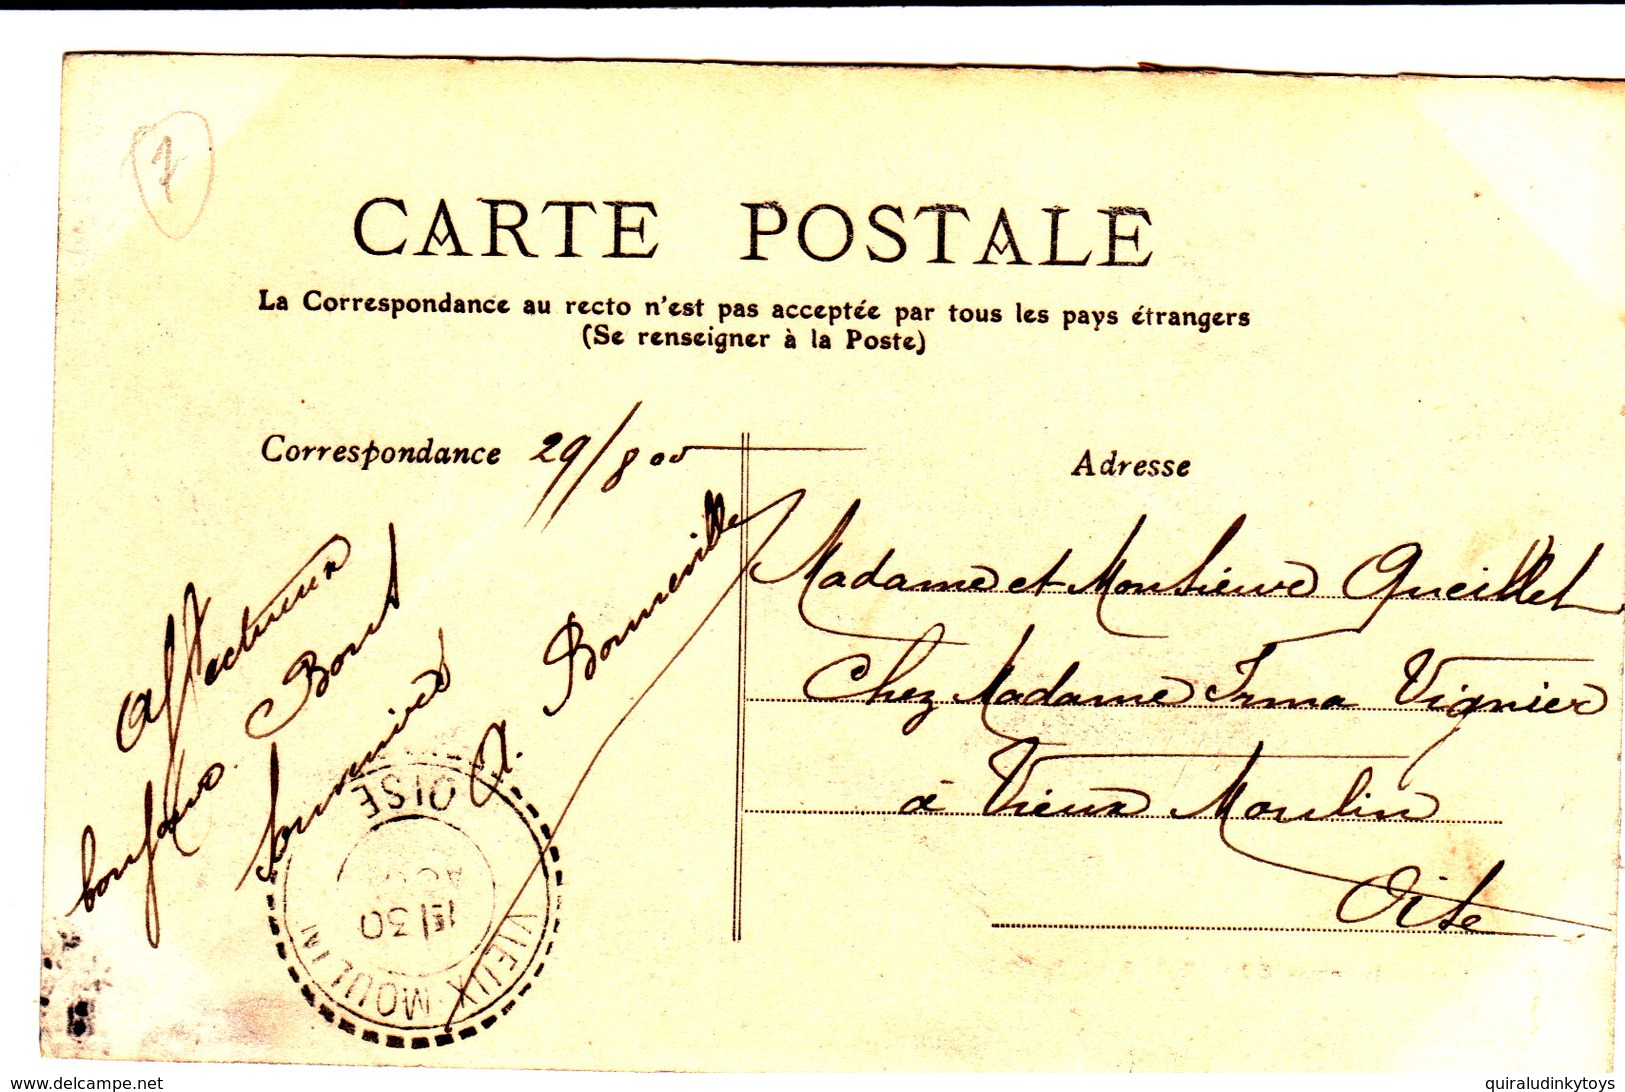 7
CARTE POSTALE
La Correspondance au recto n'est pas acceptée par tous les pays étrangers
(Se renseigner à la Poste)
Correspondance 29/8
Adresse
Affectueux
Bons
bonjours
Souvenirs
A. Bonneville
Madame et Monsieur Queillet
Chez Madame Irma Vignier
à Vieux Moulin
Oise
VIEUX MOULIN
OISE
1E 30
AOUT
www.delcampe.net
quiraludinkytoys